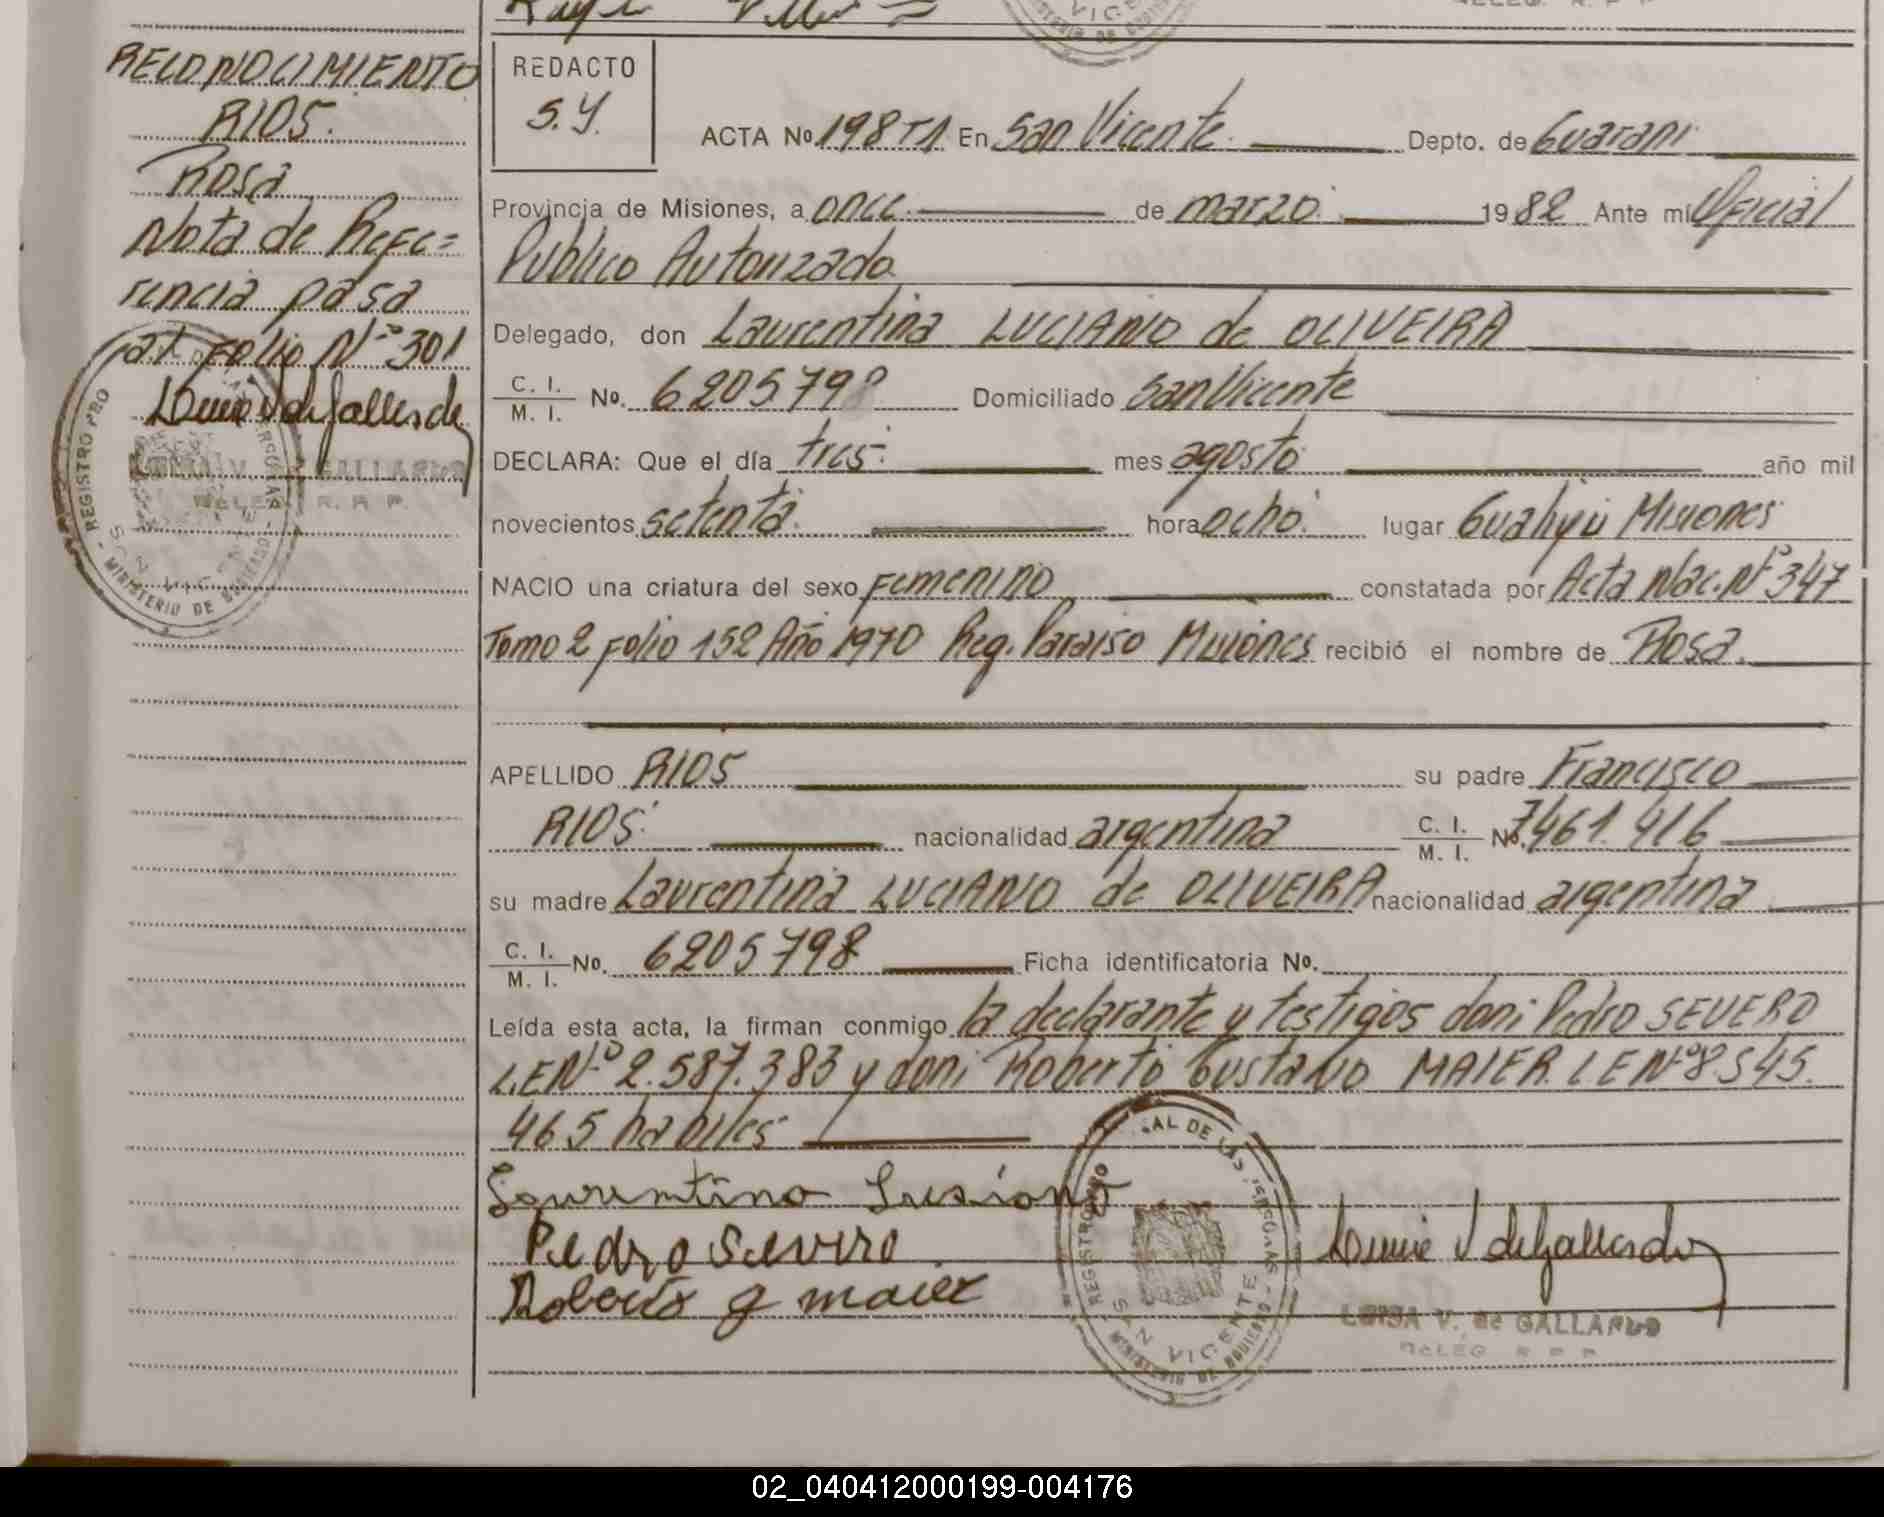 RECONOCIMIENTO
RIOS.
Rosa
Nota de Refe=
rencia pasa
al Folio Nº 301
LUISA V. de GALLARDO
DELEG. R. P. P.
REGISTRO PRO
SAN VICENTE
MINISTERIO DE GOBIERNO
REDACTO
S.Y.
ACTA No 198 T1 En San Vicente. Depto. de Guarani
Provincia de Misiones, a once. de marzo. 1982 Ante mi Oficial
Publico Autorizado
Delegado, don Laurentina LUCIANO de OLIVEIRA
C. I.
M. I. No. 6205798 Domiciliado San Vicente
DECLARA: Que el día tres: mes agosto año mil
novecientos setenta. hora ocho. lugar Guahyú Misiones
NACIO una criatura del sexo Femenino constatada por Acta Nac. Nº 347
Tomo 2 folio 152 Año 1970 Reg. Paraiso Misiones recibió el nombre de Rosa.
APELLIDO RIOS su padre Francisco
RIOS. nacionalidad argentina C. I.
M. I. No. 7461.416
su madre Laurentina LUCIANO de OLIVEIRA nacionalidad argentina
C. I.
M. I. No. 6205798 Ficha identificatoria No.
Leída esta acta, la firman conmigo la declarante y testigos don: Pedro SEVERO
L.E Nº 2.587.383 y don: Roberto Gustavo MAIER L E Nº 8545.
465 habiles
Laurentina Lusiano
Pedro Severo
Roberto g maier
REGISTRO PRO AL DE LAS PERSONAS
SAN VICENTE
MINISTERIO DE GOBIERNO
LUISA V. de GALLARDO
DELEG. R. P. P.
02_040412000199-004176